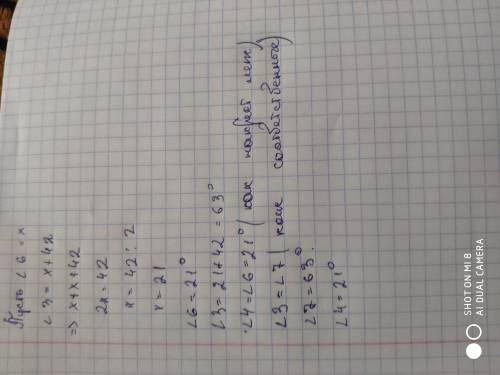 Пусть ∠6 = x
∠3 = x+42
=> x+x+42
2x = 42
x = 42:2
x = 21
∠6 = 21°
∠3 = 21+42 = 63°
∠4 = ∠6 = 21° (как накрест леж)
∠3 = ∠7 (как соответственные)
∠7 = 63°.
∠4 = 21°
SHOT ON MI 8
AI DUAL CAMERA